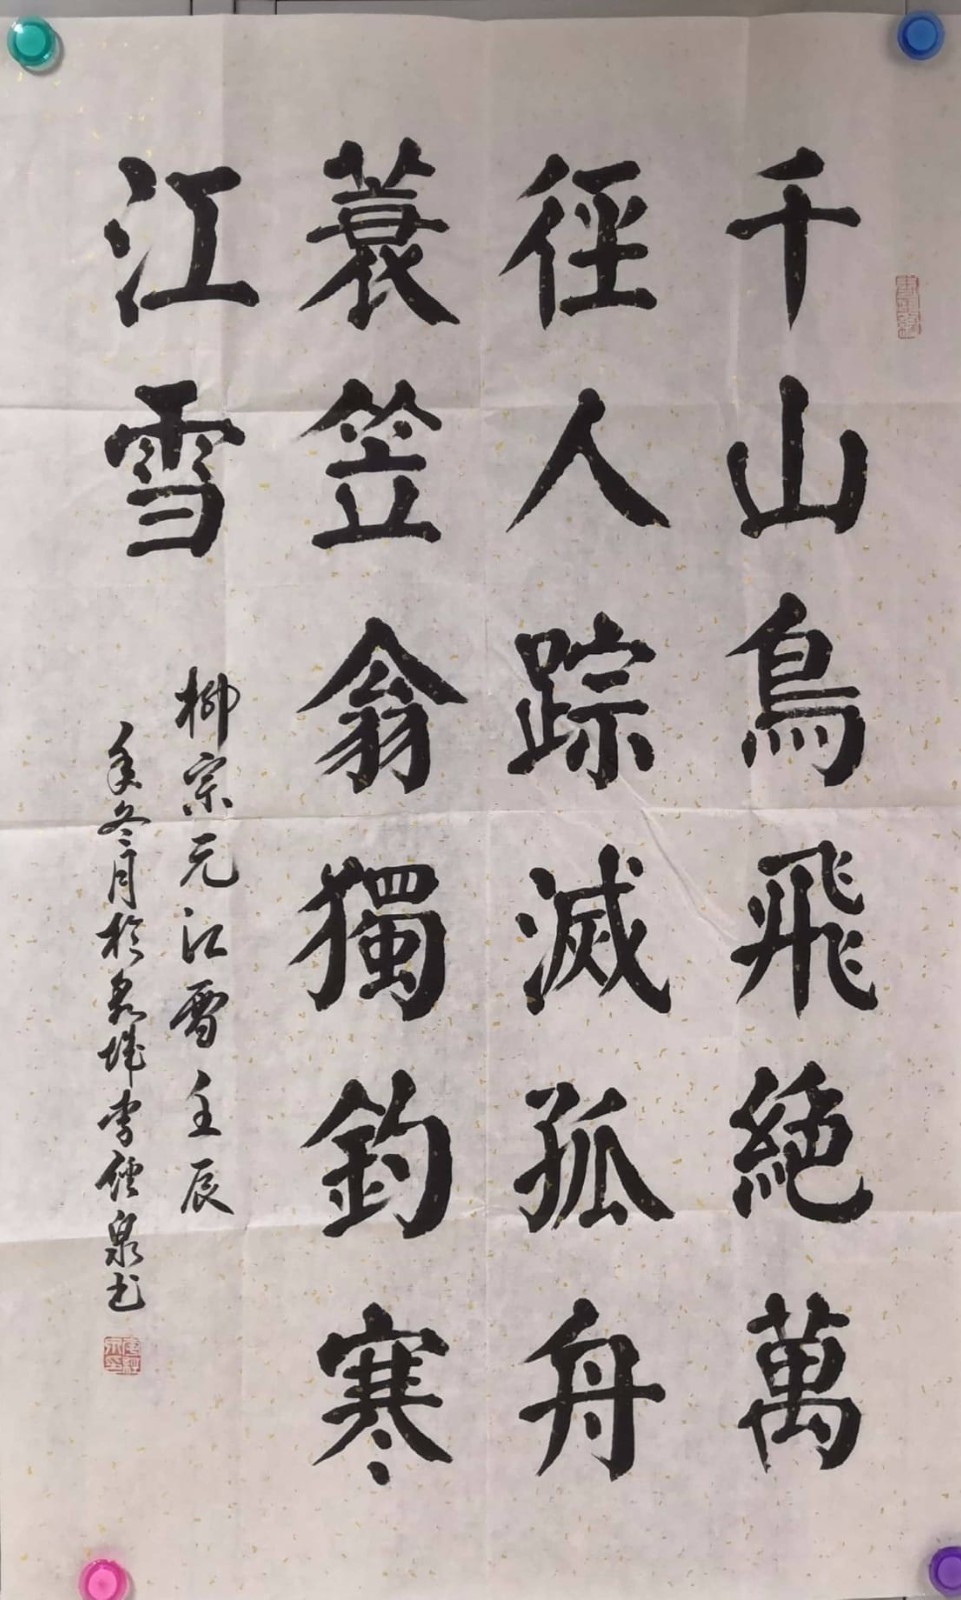 千山鳥飛絶萬
徑人踪滅孤舟
蓑笠翁獨釣寒
江雪
柳宗元江雪壬辰
年冬月於泉城李儒泉书